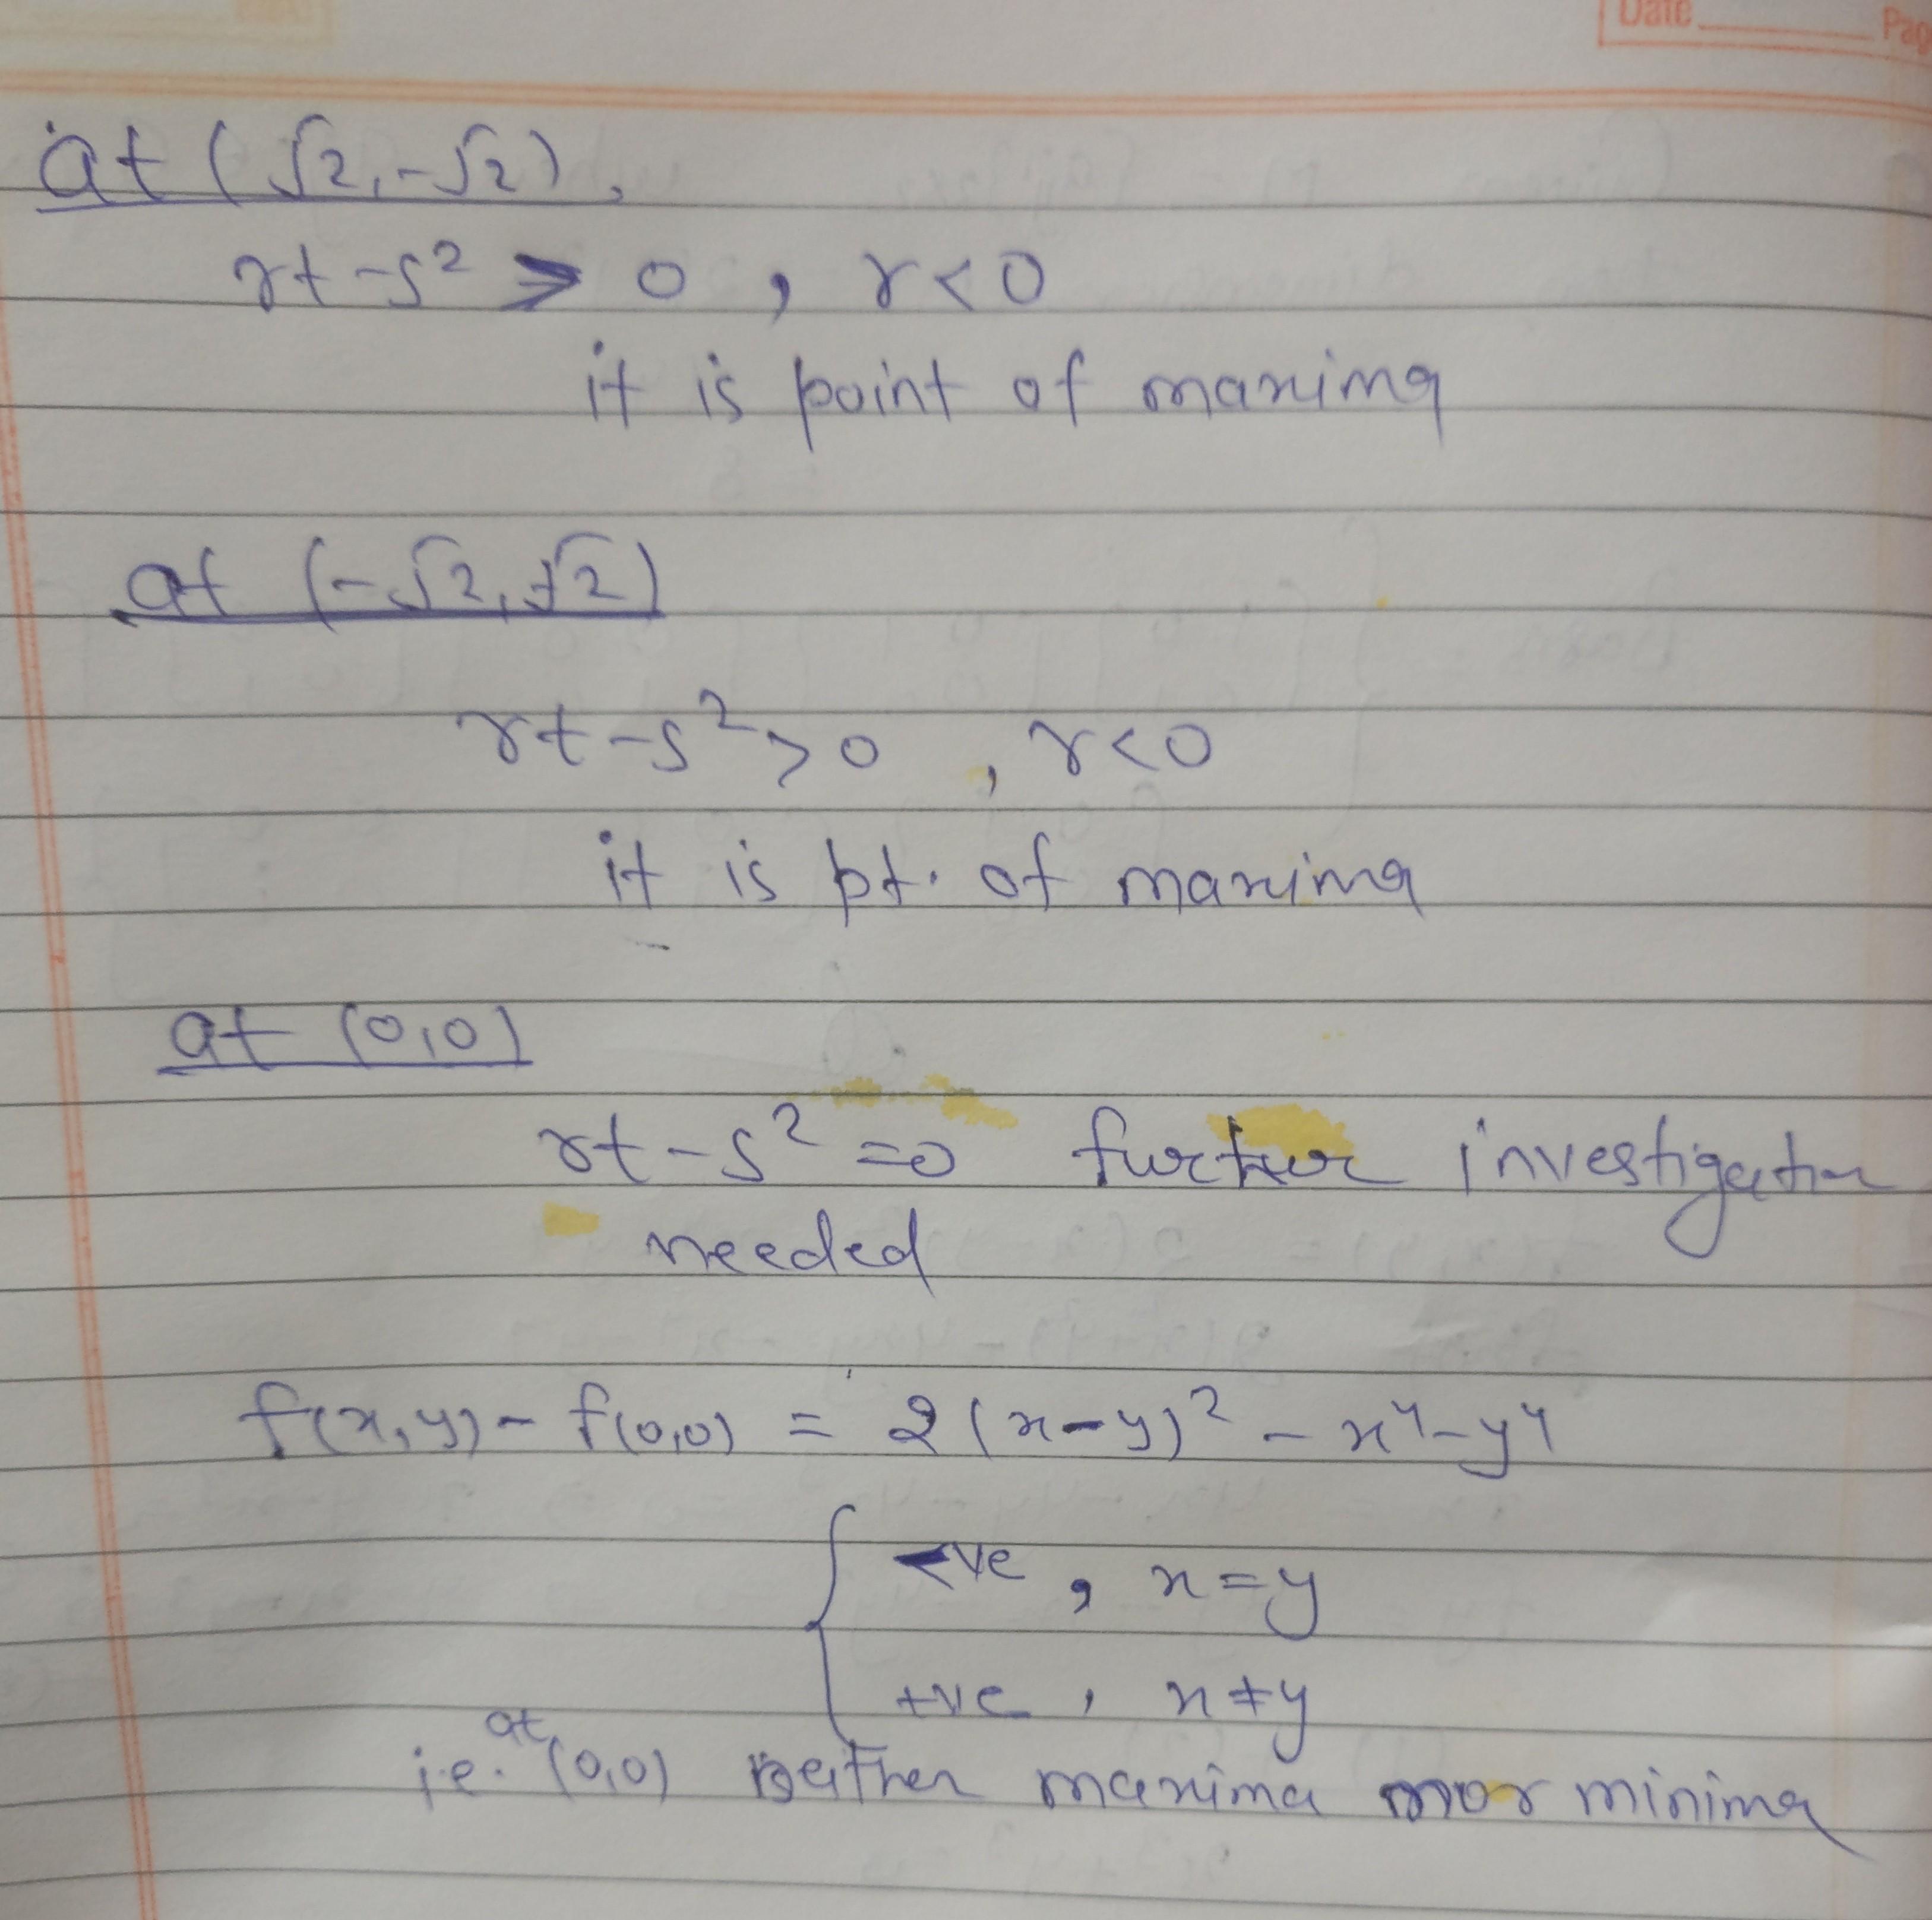 Date
Pag
at (√2, -√2),
rt - s² > 0 , r < 0
it is point of maxima
at (-√2, √2)
rt - s² > 0 , r < 0
it is pt. of maxima
at (0,0)
rt - s² = 0 further investigation
needed
f(x,y) - f(0,0) = 2(x-y)² - x⁴ - y⁴
-ve , x = y
+ve , x ≠ y
i.e. at (0,0) neither maxima nor minima